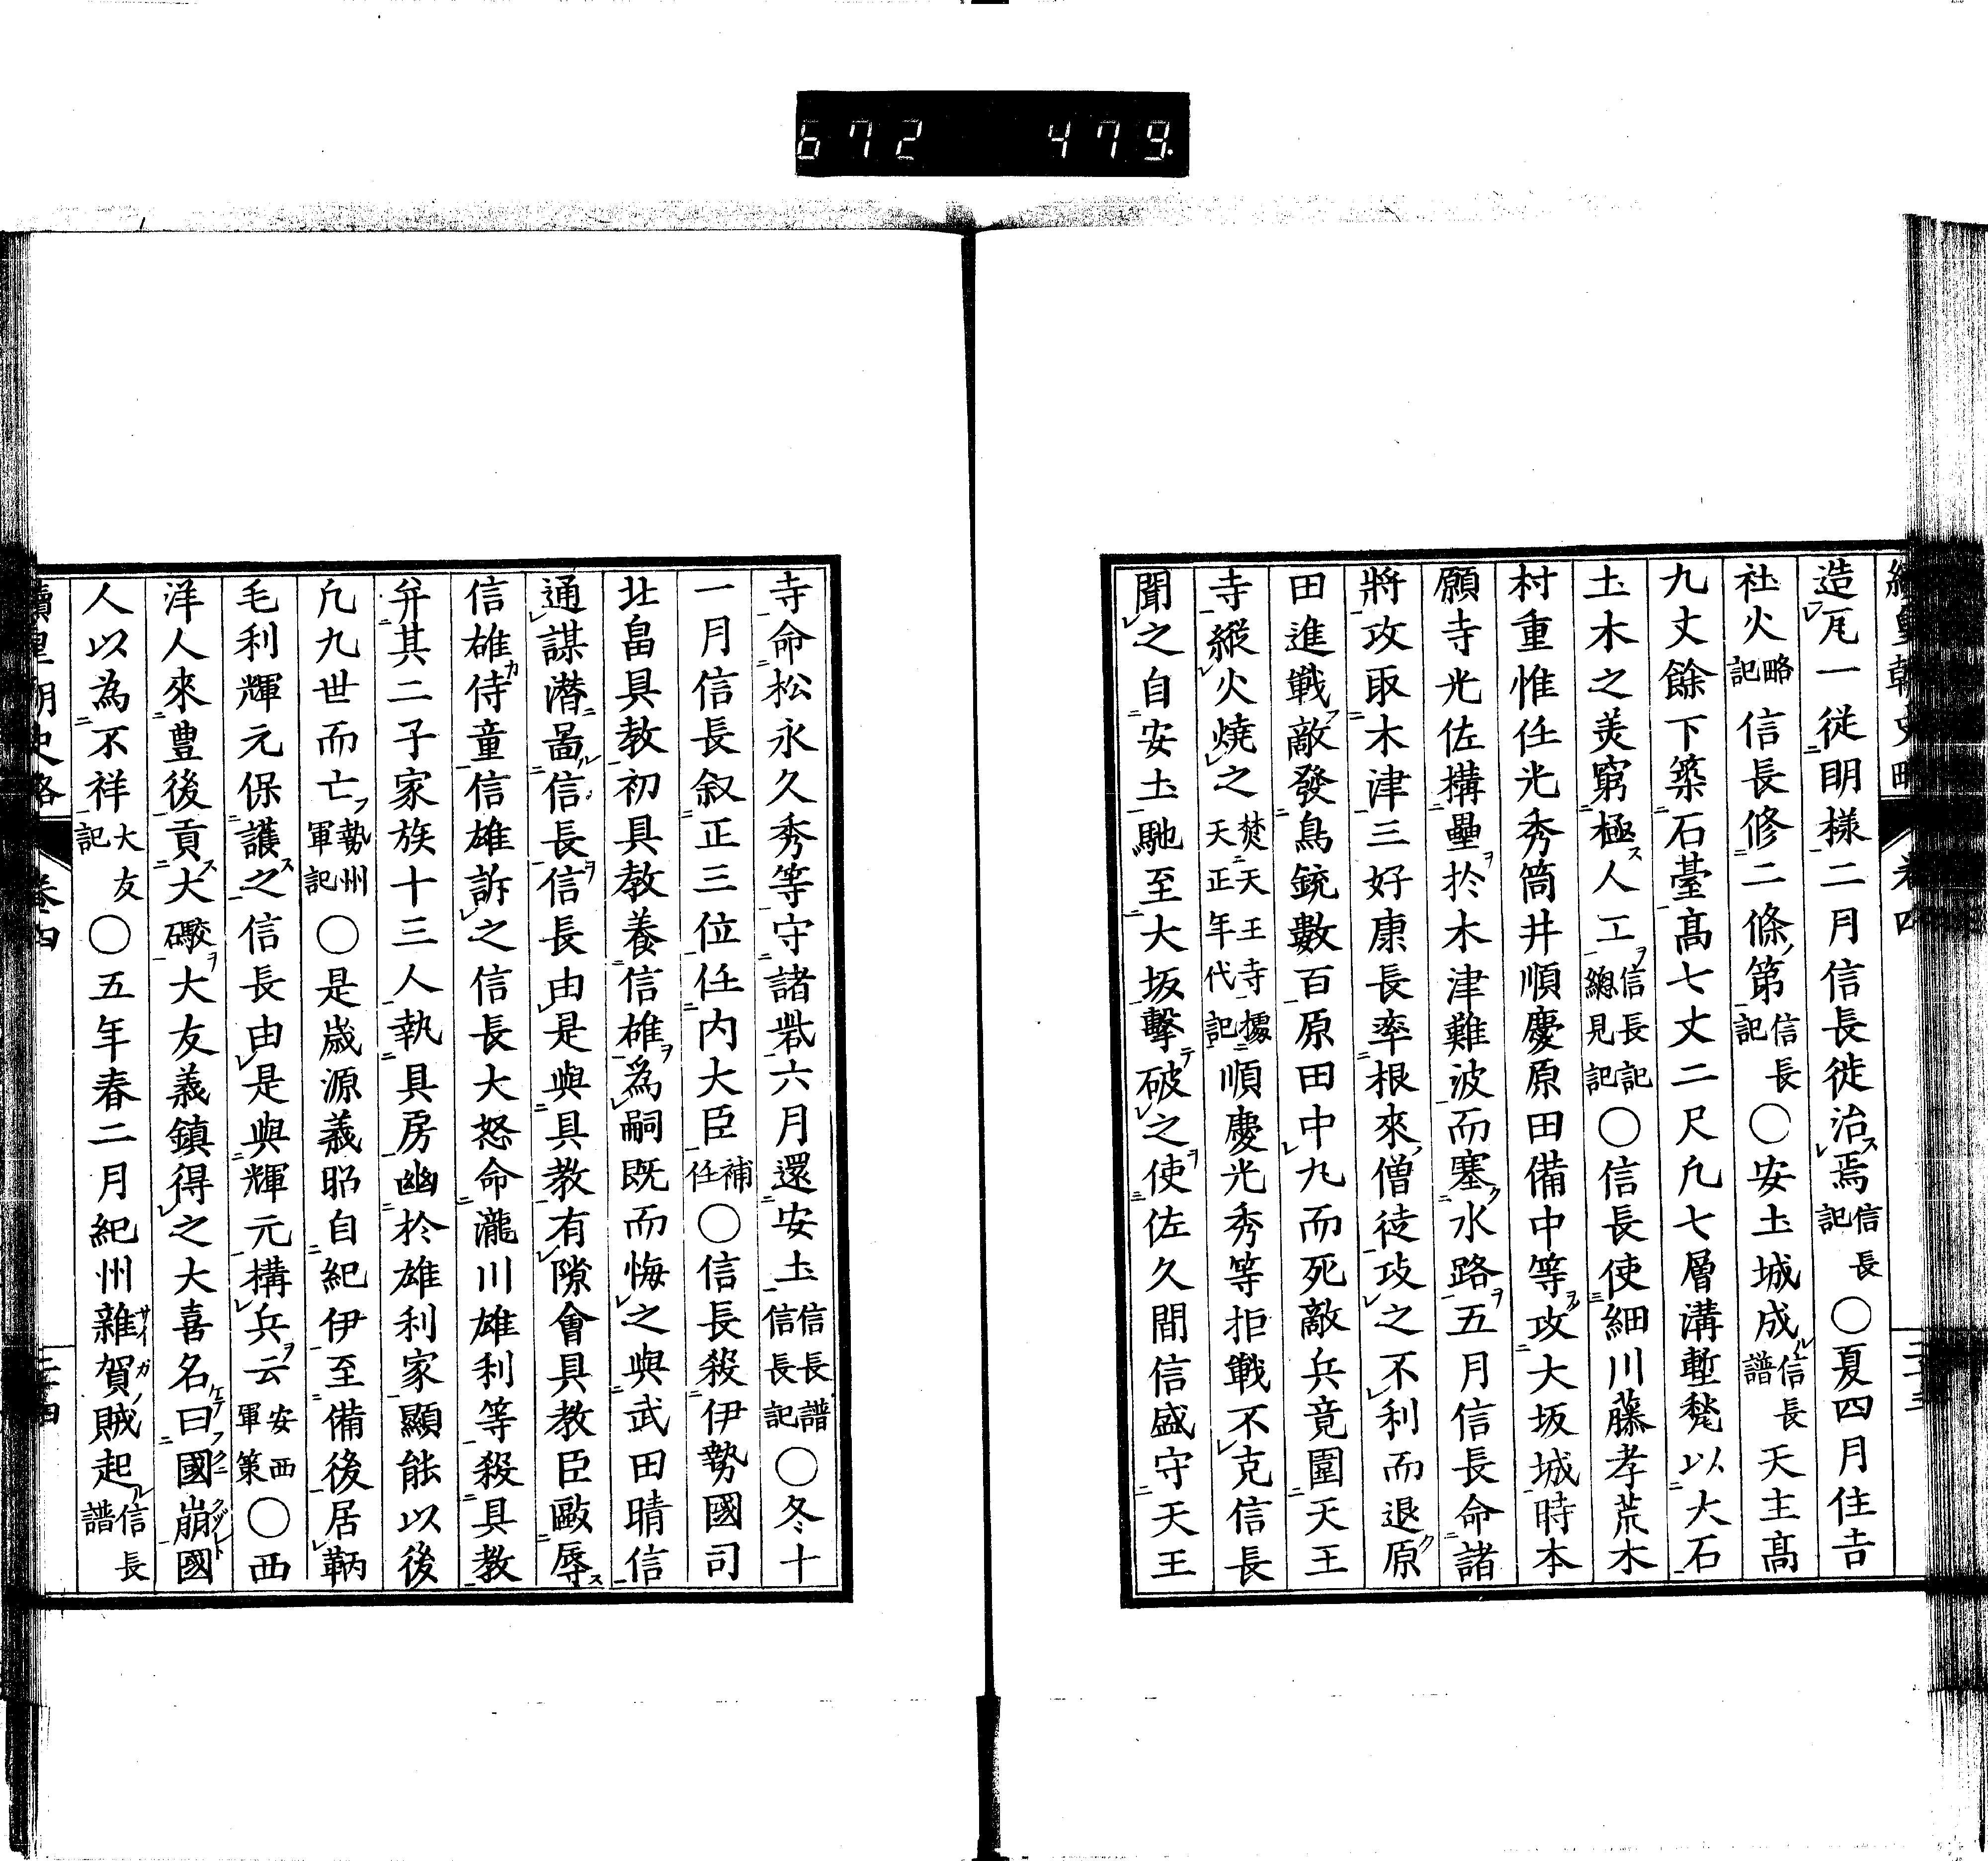 672 479
造瓦一從明樣二月信長徙治焉信長記○夏四月住吉
社火略記信長修二條第信長記○安土城成信長譜天主髙
九丈餘下築石臺髙七丈二尺凢七層溝塹甃以大石
土木之美窮極人工信長記總見記○信長使細川藤孝荒木
村重惟任光秀筒井順慶原田備中等攻大坂城時本
願寺光佐構壘於木津難波而塞水路五月信長命諸
將攻取木津三好康長率根來僧徒攻之不利而退原
田進戰敵發鳥銃數百原田中丸而死敵兵竟圍天王
寺縱火燒之焚天王寺據天正年代記順慶光秀等拒戰不克信長
聞之自安土馳至大坂擊破之使佐久間信盛守天王
寺命松永久秀等守諸砦六月還安土信長譜信長記○冬十
一月信長叙正三位任内大臣補任○信長殺伊勢國司
北畠具教初具教養信雄爲嗣既而悔之與武田晴信
通謀潜啚信長信長由是與具教有隙會具教臣毆辱
信雄侍童信雄訴之信長大怒命瀧川雄利等殺具教
并其二子家族十三人執具房幽於雄利家顯能以後
凢九世而亡勢州軍記○是歳源義昭自紀伊至備後居鞆
毛利輝元保護之信長由是與輝元構兵云安西軍策○西
洋人來豊後貢大礮大友義鎮得之大喜名曰國崩國
人以為不祥大友記○五年春二月紀州雜賀賊起信長譜